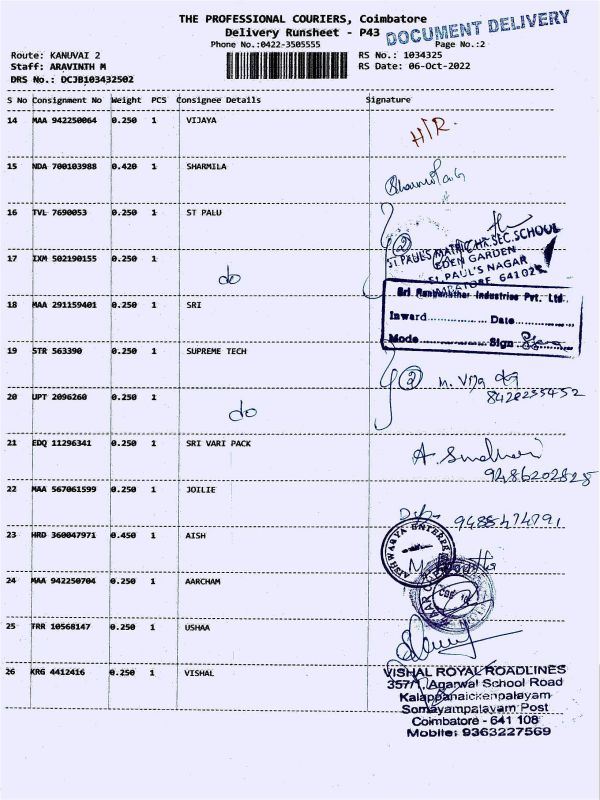 THE PROFESSIONAL COURIERS, Coimbatore
Delivery Runsheet - P43
DOCUMENT DELIVERY
Phone No.:0422-3505555
Page No.:2
Route: KANUVAI 2
RS No.: 1034325
Staff: ARAVINTH M
RS Date: 06-Oct-2022
DRS No.: DCJB103432502
S No Consignment No Weight PCS Consignee Details Signature
14 MAA 942250064 0.250 1 VIJAYA
HIR.
15 NDA 700103988 0.420 1 SHARMILA
16 TVL 7690053 0.250 1 ST PALU
2
ST.PAUL'S MATRIC.HR.SEC.SCHOOL
EDEN GARDEN
ST.PAUL'S NAGAR
641025
17 IXM 502190155 0.250 1
do
18 MAA 291159401 0.250 1 SRI
Sri Ranganathar Industries Pvt. Ltd.
Inward............... Date...............
Mode............... Sign...............
19 STR 563390 0.250 1 SUPREME TECH
2 m. Vija
8428235452
20 UPT 2096260 0.250 1
do
21 EDQ 11296341 0.250 1 SRI VARI PACK
9486202825
22 MAA 567061599 0.250 1 JOILIE
9485474791
23 HRD 360047971 0.450 1 AISH
AISHWARYA ENTERPRI
24 MAA 942250704 0.250 1 AARCHAM
25 TRR 10568147 0.250 1 USHAA
26 KRG 4412416 0.250 1 VISHAL
VISHAL ROYAL ROADLINES
357/1, Agarwal School Road
Kalappanaickenpalayam
Somayampalayam Post
Coimbatore - 641 108
Mobile: 9363227569